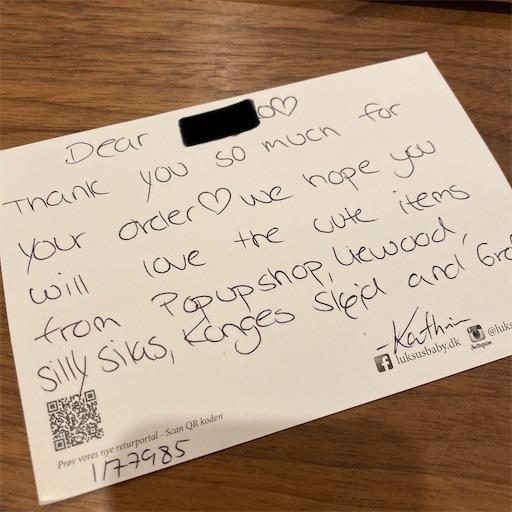 Dear o♡
Thank you so much for
your order♡ we hope you
will love the cute items
from Popupshop, Liewood,
Silly Silas, Konges Sløjd and Gro
-Kathrin
luksusbaby.dk @luks
Prøv vores nye returportal - Scan QR koden
1177985